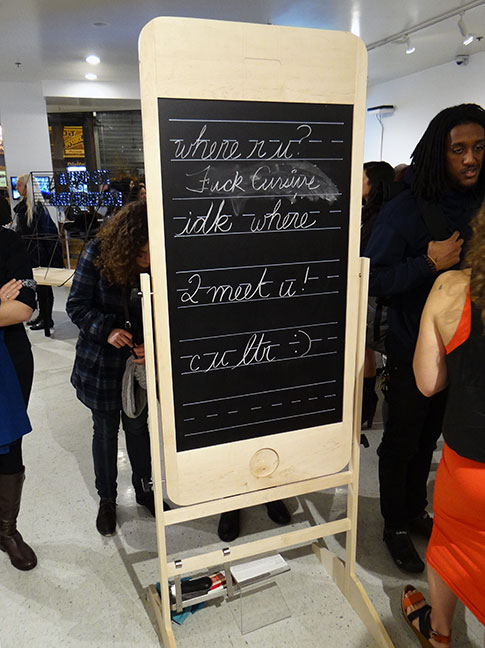 where r u?
Fuck Cursive
idk where
2 meet u!
c u ltr :)